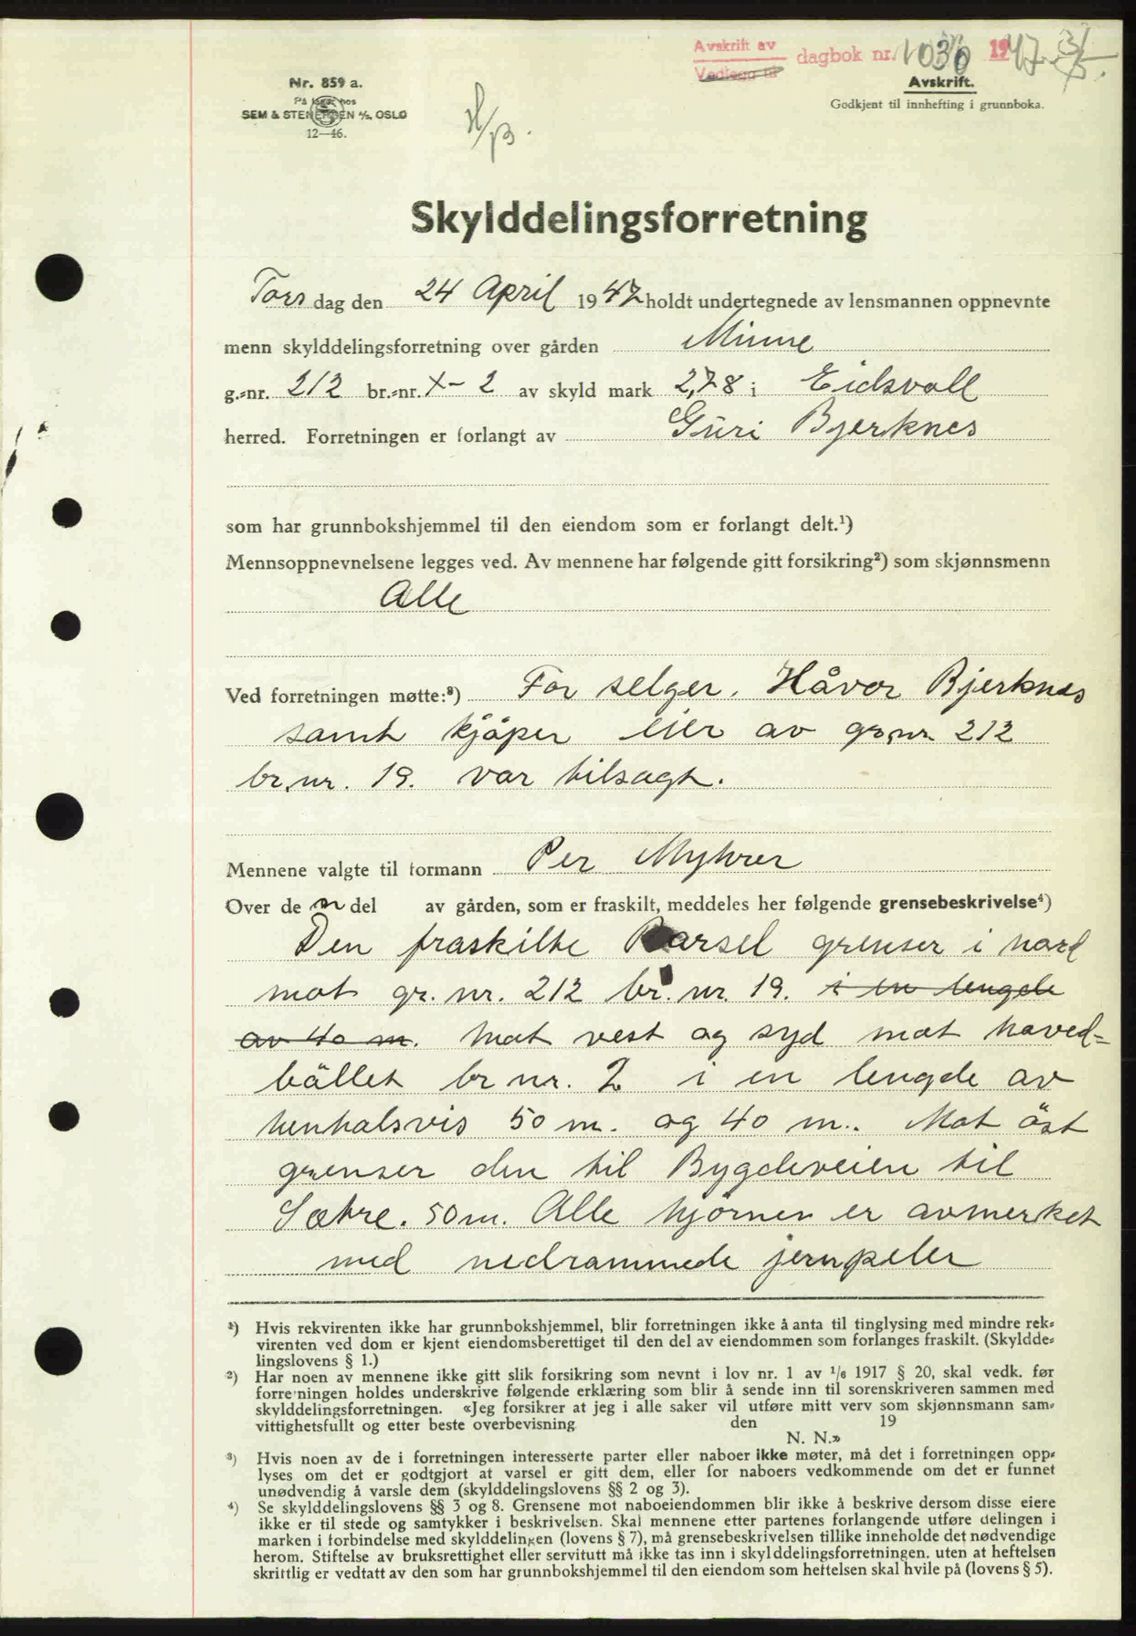 Avskrift av
Vedlegg til
dagbok nr. 1030 1947-31/5.
Nr. 859 a.
På lager hos
SEM & STENERSEN A/S, OSLO
12—46.
Avskrift.
Godkjent til innhefting i grunnboka.
Skylddelingsforretning
Tors dag den 24 April 1947 holdt undertegnede av lensmannen oppnevnte
menn skylddelingsforretning over gården Minne
g.-nr. 212 br.-nr. X-2 av skyld mark 2,78 i Eidsvoll
herred. Forretningen er forlangt av Guri Bjerknes
som har grunnbokshjemmel til den eiendom som er forlangt delt.¹)
Mennsoppnevnelsene legges ved. Av mennene har følgende gitt forsikring²) som skjønnsmenn
Alle
Ved forretningen møtte:³) For selger, Håvor Bjerknes
samt kjøper eier av gr.nr. 212
br.nr. 19. var tilsagt.
Mennene valgte til formann Per Myhrer
Over de n del av gården, som er fraskilt, meddeles her følgende grensebeskrivelse⁴)
Den fraskilte Parsel grenser i nord
mot gr. nr. 212 br. nr. 19. i en lengde
av 40 m. Mot vest og syd mot hoved=
bøllet br nr. 2 i en lengde av
henholsvis 50 m. og 40 m.. Mot öst
grenser den til Bygdeveien til
Sætre. 50m. Alle hjørner er avmerket
med nedrammede jernpeler
¹) Hvis rekvirenten ikke har grunnbokshjemmel, blir forretningen ikke å anta til tinglysing med mindre rek-
virenten ved dom er kjent eiendomsberettiget til den del av eiendommen som forlanges fraskilt. (Skyldde-
lingslovens § 1.)
²) Har noen av mennene ikke gitt slik forsikring som nevnt i lov nr. 1 av 1/6 1917 § 20, skal vedk. før
forretningen holdes underskrive følgende erklæring som blir å sende inn til sorenskriveren sammen med
skylddelingsforretningen. «Jeg forsikrer at jeg i alle saker vil utføre mitt verv som skjønnsmann sam-
vittighetsfullt og etter beste overbevisning den 19
N. N.»
³) Hvis noen av de i forretningen interesserte parter eller naboer ikke møter, må det i forretningen opp-
lyses om det er godtgjort at varsel er gitt dem, eller for naboers vedkommende om det er funnet
unødvendig å varsle dem (skylddelingslovens §§ 2 og 3).
⁴) Se skylddelingslovens §§ 3 og 8. Grensene mot naboeiendommen blir ikke å beskrive dersom disse eiere
ikke er til stede og samtykker i beskrivelsen. Skal mennene etter partenes forlangende utføre delingen i
marken i forbindelse med skylddelingen (lovens § 7), må grensebeskrivelsen tillike inneholde det nødvendige
herom. Stiftelse av bruksrettighet eller servitutt må ikke tas inn i skylddelingsforretningen. uten at heftelsen
skriftlig er vedtatt av den som har grunnbokshjemmel til den eiendom som heftelsen skal hvile på (lovens § 5).